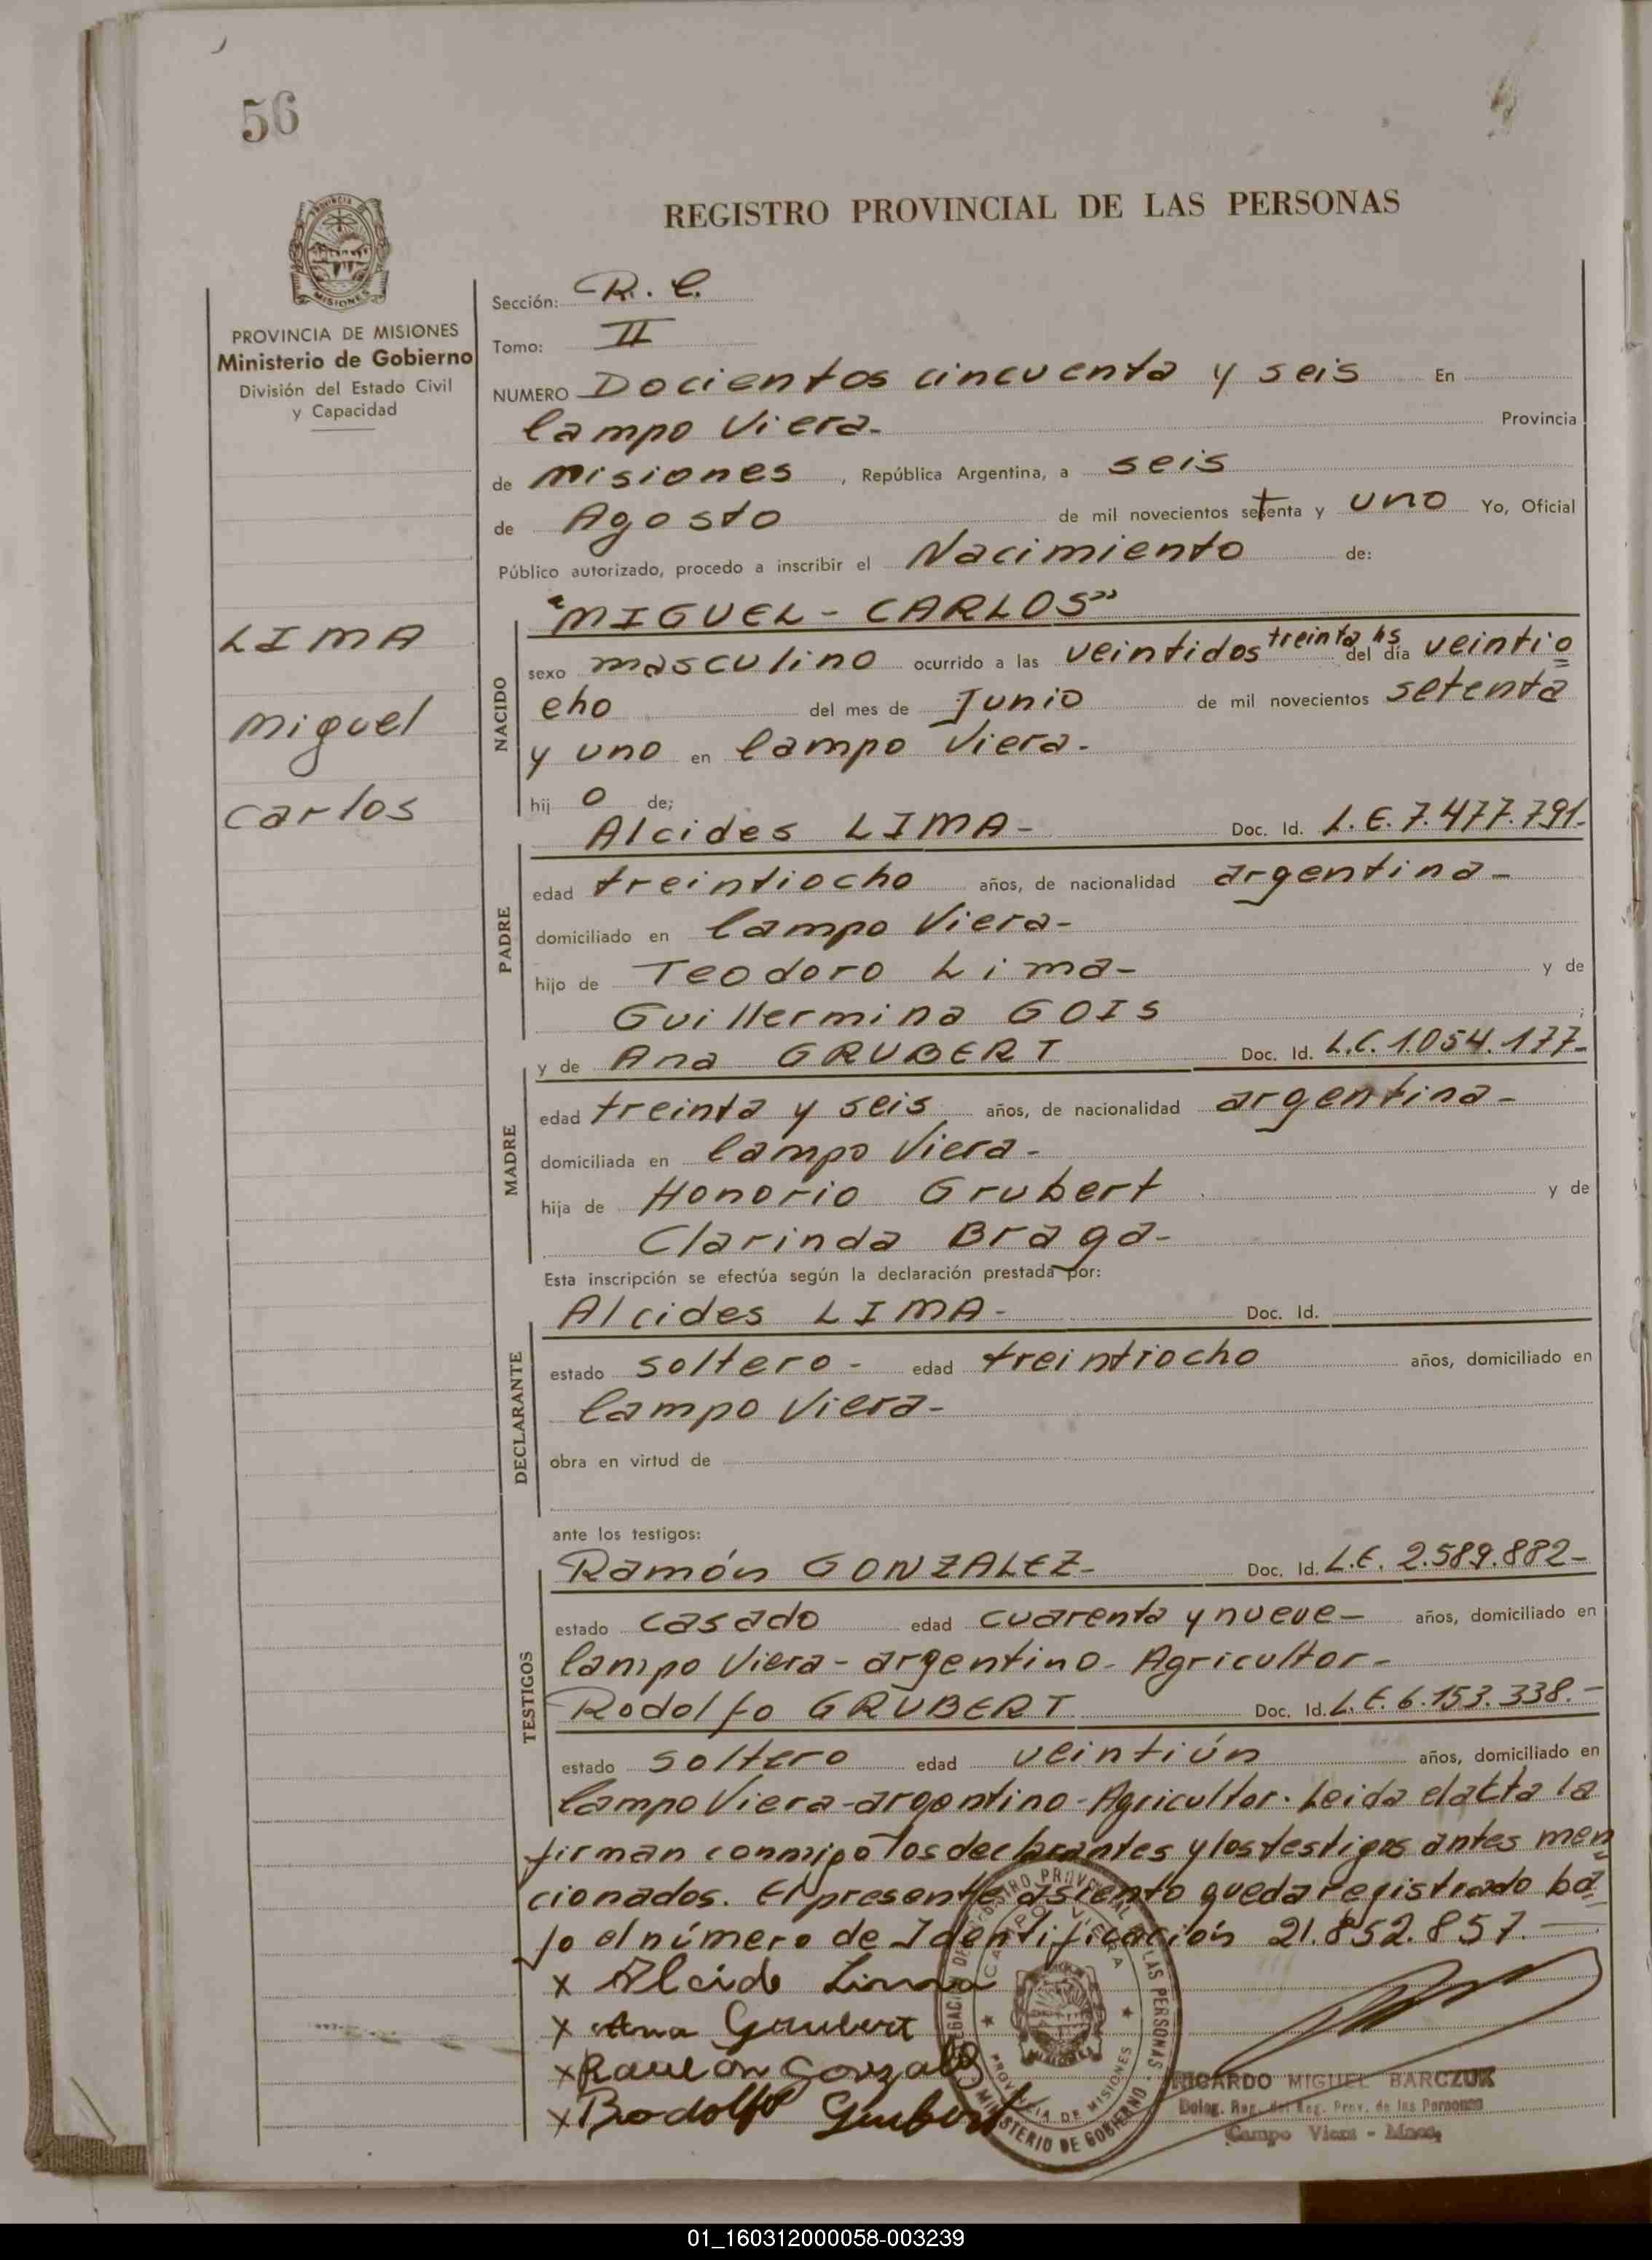 56
REGISTRO PROVINCIAL DE LAS PERSONAS
PROVINCIA DE MISIONES
Ministerio de Gobierno
División del Estado Civil
y Capacidad
LIMA
Miguel
Carlos
Sección: R. C.
Tomo: II
NUMERO Docientos cincuenta y seis En
Campo Viera- Provincia
de Misiones, República Argentina, a seis
de Agosto de mil novecientos setenta y uno Yo, Oficial
Público autorizado, procedo a inscribir el Nacimiento de:
"MIGUEL - CARLOS"
NACIDO
sexo masculino ocurrido a las veintidos treinta hs del día veintio
cho del mes de Junio de mil novecientos setenta
y uno en Campo Viera-
hij o de;
Alcides LIMA- Doc. Id. L.E. 7.477.791-
PADRE
edad treintiocho años, de nacionalidad argentina-
domiciliado en Campo Viera-
hijo de Teodoro Lima- y de
Guillermina GOIS ;
y de Ana GRUBERT Doc. Id. L.C. 1.054.177-
MADRE
edad treinta y seis años, de nacionalidad argentina-
domiciliada en Campo Viera-
hija de Honorio Grubert y de
Clarinda Braga-
Esta inscripción se efectúa según la declaración prestada por:
Alcides LIMA- Doc. Id.
DECLARANTE
estado soltero- edad treintiocho años, domiciliado en
Campo Viera-
obra en virtud de
ante los testigos:
Ramón GONZALEZ- Doc. Id. L.E. 2.589.882-
TESTIGOS
estado casado edad cuarenta y nueve- años, domiciliado en
Campo Viera- argentino- Agricultor-
Rodolfo GRUBERT Doc. Id. L.E. 6.153.338.-
estado soltero edad veintiún años, domiciliado en
Campo Viera-argentino-Agricultor. Leida el acta la
firman conmigo los declarantes y los testigos antes men
cionados. El presente asiento queda registrado ba
jo el número de Identificación 21.852.857.-
x Alcide Lima
x Ana Grubert
x Ramon Gonzalez
x Rodolfo Grubert
CAMPO VIERA
PROVINCIA DE MISIONES
MINISTERIO DE GOBIERNO
RICARDO MIGUEL BARCZUK
Deleg. Reg. del Reg. Prov. de las Personas
Campo Viera - Mnes.
01_160312000058-003239